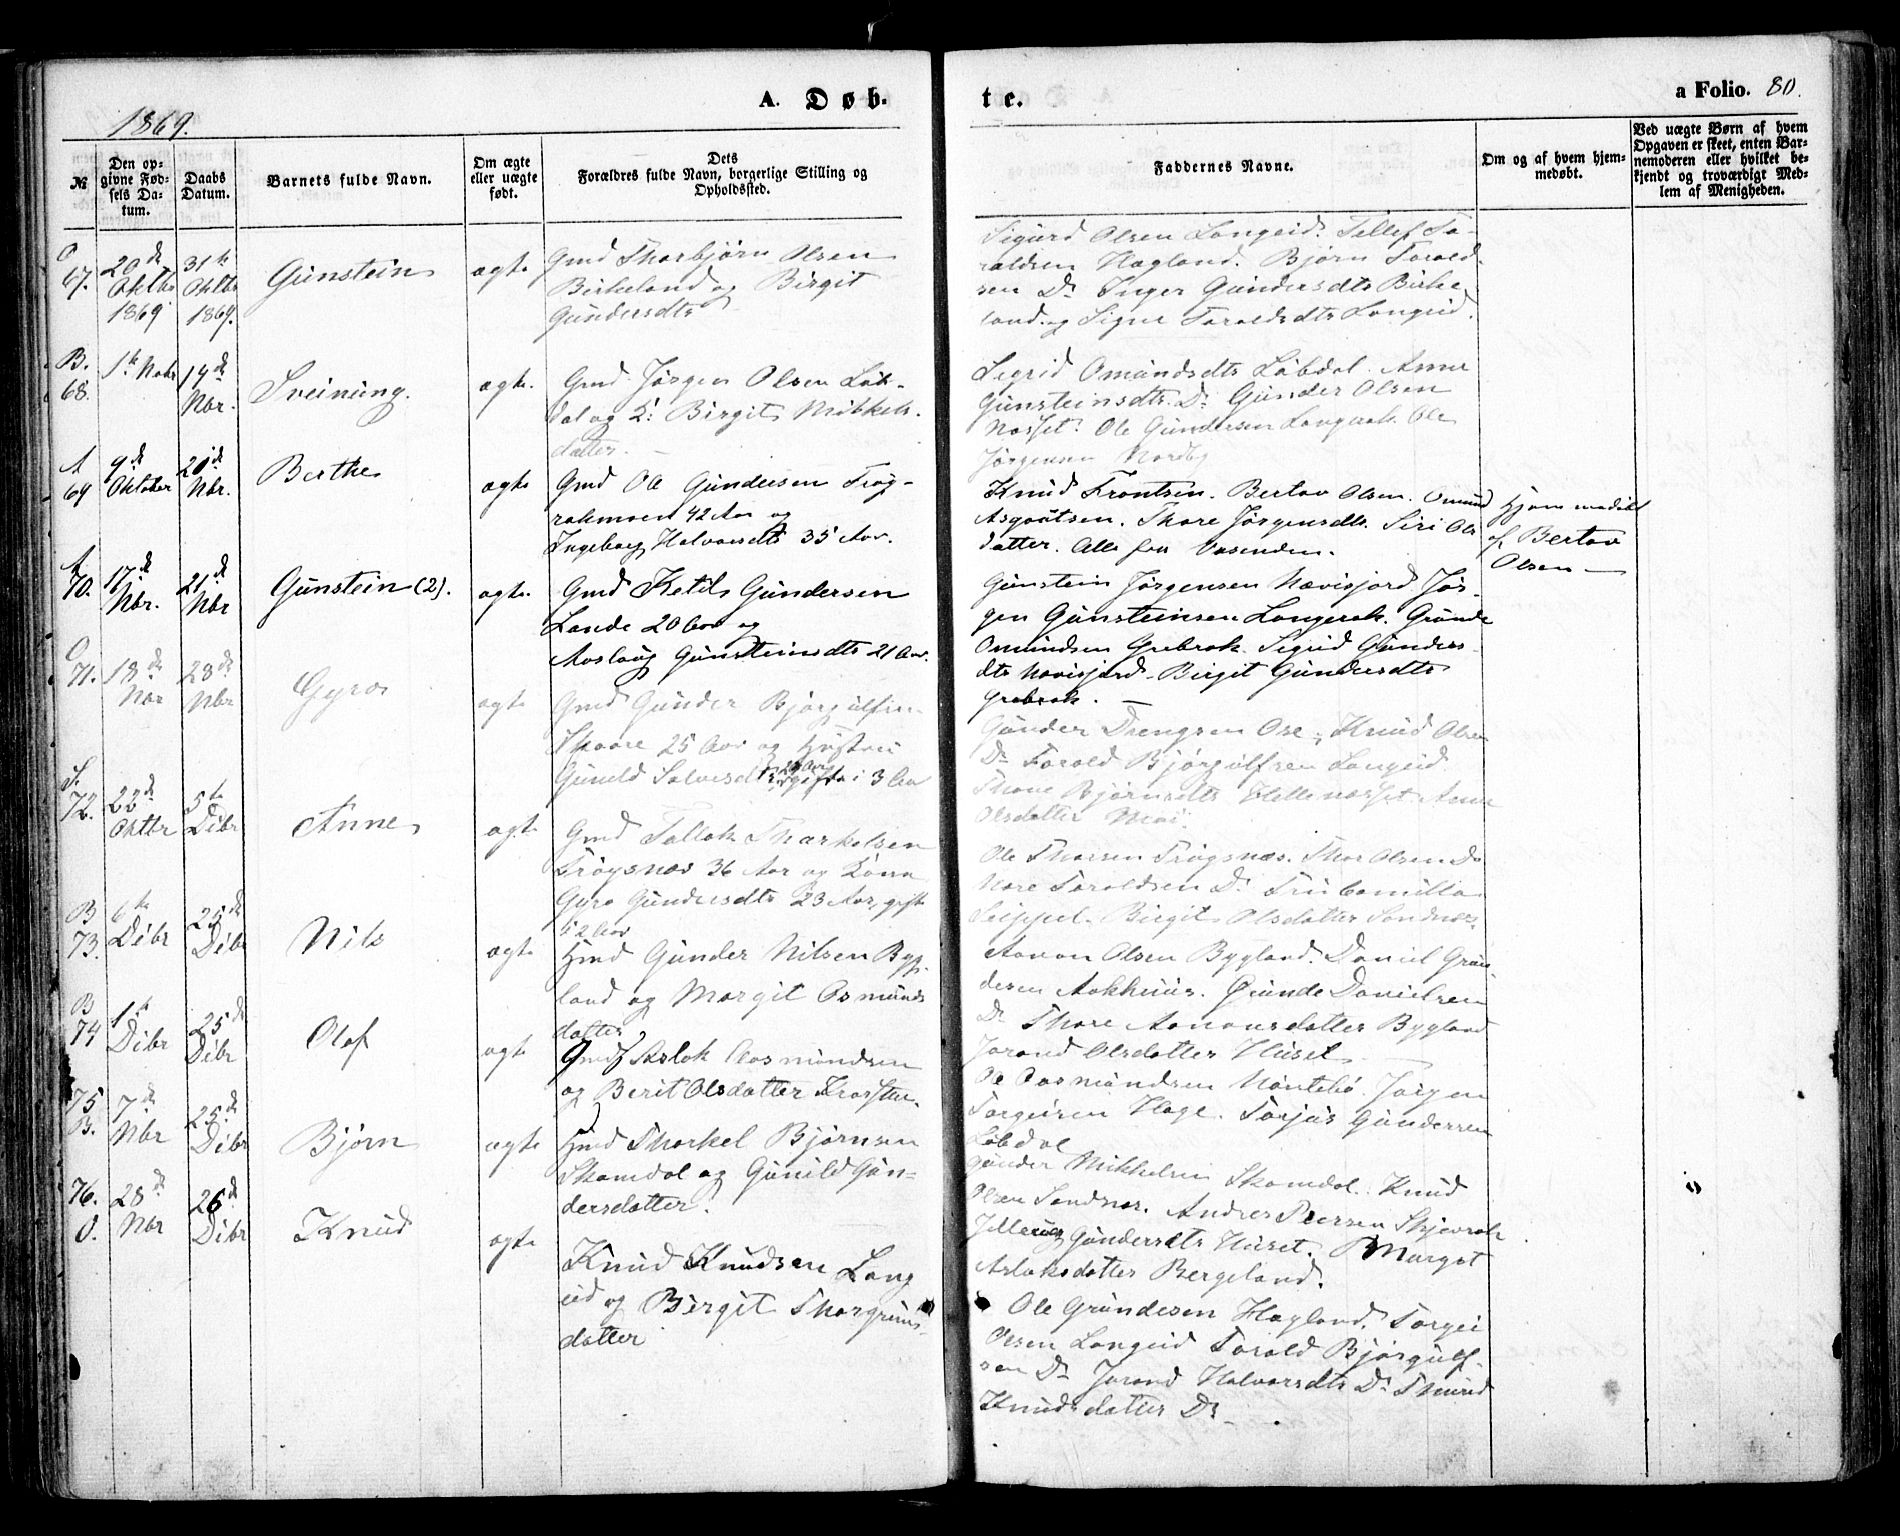 1869.
A. Døb-
te.
a Folio. 80.
№
Den op-
givne Fød-
sels Da-
tum.
Daabs
Datum.
Barnets fulde Navn.
Om ægte
eller uægte
født.
Dets
Forældres fulde Navn, borgerlige Stilling og
Opholdssted.
Faddernes Navne.
Om og af hvem hjem-
medøbt.
Ved uægte Børn af hvem
Opgaven er skeet, enten Bar-
nemoderen eller hvilket be-
kjendt og troværdigt Med-
lem af Menigheden.
O
67.
20de
Oktbr
1869
31te
Oktbr
1869.
Gunstein
ægte
Gmd Thorbjörn Olsen
Birkeland og Birgit
Gundersdtr
Sigurd Olsen Langeid. Tellef To-
raldsen Hagland. Bjørn Torald-
sen Do Inger Gundersdtr Birke
land og Signe Toraldsdtr Langeid.
B.
68.
1te Nobr
14de
Nbr.
Sveinung.
ægte.
Gmd Jørgen Olsen Løb-
dal og K: Birgit Mikkels-
datter.
Sigrid Omundsdtr Løbdal. Anne
Gunsteinsdtr Do Gunder Olsen
Næsset. Ole Gundersen Langerak. Ole
Jørgensen
A
69
9de
Oktober
20de
Nbr.
Berthe
ægte
Gmd Ole Gundersen Frøg-
rakmoen 42 Aar og
Ingeborg Halvorsdtr 35 Aar.
Knud Frontsen. Bertov Olsen. Omund
Asgautsen. Thore Jørgensdtr. Siri Ols
datter. Alle fra Vasenden.
Hjemmedøbt
af Bertov
Olsen —
A
70.
17de
Nbr.
21de
Nbr
Gunstein (2).
ægte.
Gmd Ketil Gundersen
Lande 20 Aar og
Aslaug Gunsteinsdtr 21 Aar.
Gunstein Jørgensen Nævisjord Jør-
gen Gunsteinsen Langerak. Grunde
Omundsen Grebrok. Sigrid Gunders
dtr Nævisjord. Birgit Gundersdtr
Grebrok. —
O
71.
18de
Nbr
28de
Nbr
Gyro
ægte
Gmd Gunder Bjørgulfsen
Skaare 25 Aar og Hustru
Gunild Salvesdtr gifte i 3 Aar
Gunder Drengsen Ose, Knud Olsen
Do Torald Bjørgulfsen Langeid.
Thone Bjørnsdtr Hellenæsset Anne
Olsdatter
S.
72.
22de
Oktbr
5te
Dcbr
Anne
ægte
Gmd Tallak Tharkelsen
Frøysnæs 36 Aar og Kona
Gyro Gundersdtr 23 Aar, gifte
i 2 Aar
Ole Thorsen Frøysnæs. Thor Olsen Do
Thore Toraldsen Do Camilla
Seippel. Birgit Olsdatter Sandnæs.
B
73.
6te
Dcbr
25de
Dcbr
Nils
ægte
Hmd Gunder Nilsen Byg-
land og Margit Osmunds
datter
Aanon Olsen Bygland. Daniel Grun-
desen Aakhuus. Grunde Danielsen
Do Thore Aanonsdatter Bygland
Jorand Olsdatter Huset
B
74
1te
Dcbr
25de
Dcbr
Olaf
ægte
Gmd Aslak Aasmundsen
og Berit Olsdatter
Ole Aasmundsen Jørgen
Torgeirsen Hage. Torjus Gundersen
Løbdal
75
B.
7de
Nbr
25de
Dcbr
Bjørn
ægte
Hmd Thorkel Bjørnsen
Skamdal og Gunild Gun-
dersdatter.
Gunder Mikkelsen Skamdal. Knud
Olsen Sandnæs. Andres Peersen Skjevrak
Gundersdtr Huset. Margit
Aslaksdatter Bergeland.
76.
O.
28de
Nbr
26de
Dcbr
Knud
ægte
Knud Knudsen Lang
eid og Birgit Thorgrims-
datter
Ole Grundesen Hagland. Torgei
Olsen Langeid Torald Bjørgulf-
sen Do Jorand Halvorsdtr Do Thurid
Knudsdatter Do —